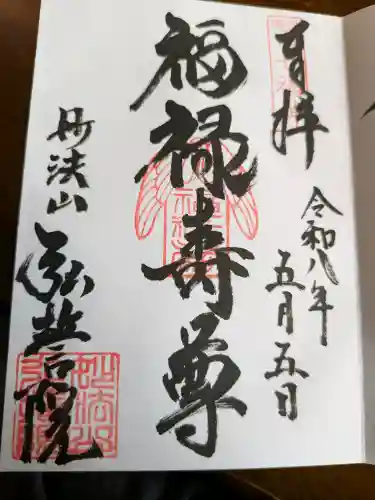 奉拝
令和八年
五月五日
福禄寿尊
妙法山
弘誓院